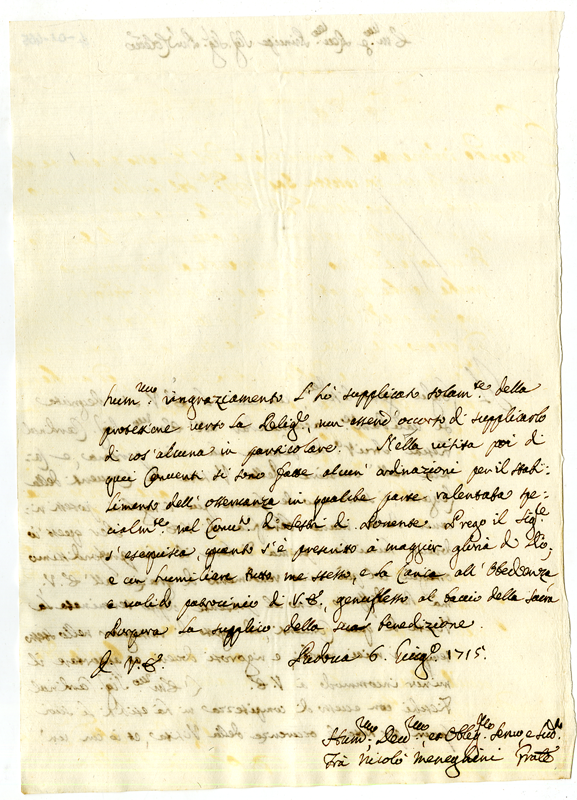 hum.mo ringraziamento l'hò supplicato solam.te della
protezione verso la Relig.e, non essend' occorso di supplicarlo
di cos' alcuna in particolare. Nella visita poi di
quei Conventi si sono fatte alcun' ordinazioni per il stabi-
limento dell' osservanza in qualche parte ralentata spe-
cialm.te nel Conv.to di Sestri di Ponente. Prego il Sig.re
s' eseguisca, quanto s' è prescritto a maggior gloria di Dio;
e con humiliare tutto me stesso, e la Carica all' Obedienza
e valido patrocinio di V.E., genuflesso al bacio della Sacra
Porpora la supplico della sua benedizione.
D. V.E. Padova 6. Giug.o 1715.
Hum.mo, Dev.mo, et Oblig.mo Servo e Sud.to
Frà Nicolò Meneghini Frate